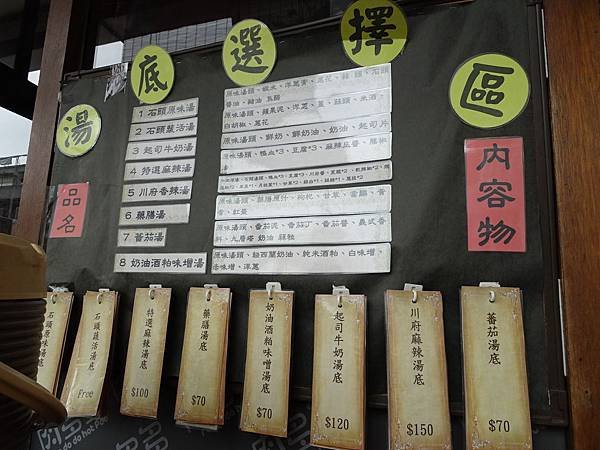 湯底選擇區
品名
內容物
1 石頭原味湯
2 石頭蔬活湯
3 起司牛奶湯
4 特選麻辣湯
5 川府香辣湯
6 藥膳湯
7 番茄湯
8 奶油酒粕味增湯
原味湯頭、鮮奶、鮮奶油、奶油、起司片
原味湯頭、鴨血*3、豆腐*3、麻辣
原味湯頭、藥膳原汁、枸杞、甘草、當歸、黃
耆、紅棗
原味湯頭、番茄泥、番茄丁、番茄醬、義式香
料、九層塔 奶油
原味湯頭、紐西蘭奶油、純米酒粕、白味增、
赤味增、洋蔥
石頭原味湯底
石頭蔬活湯底
Free
特選麻辣湯底
$100
藥膳湯底
$70
奶油酒粕味噌湯底
$70
起司牛奶湯底
$120
川府麻辣湯底
$150
蕃茄湯底
$70